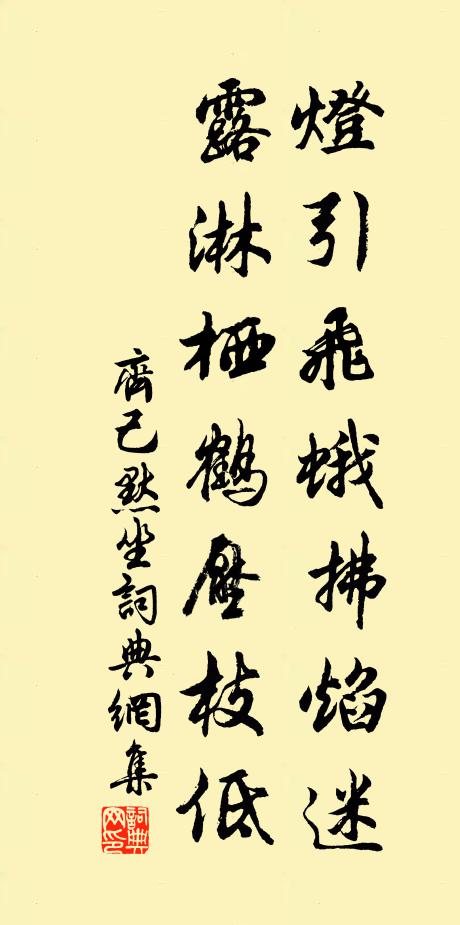 燈引飛蛾拂焰迷
露淋栖鶴壓枝低
齊己默坐詞典網集
詞典网印